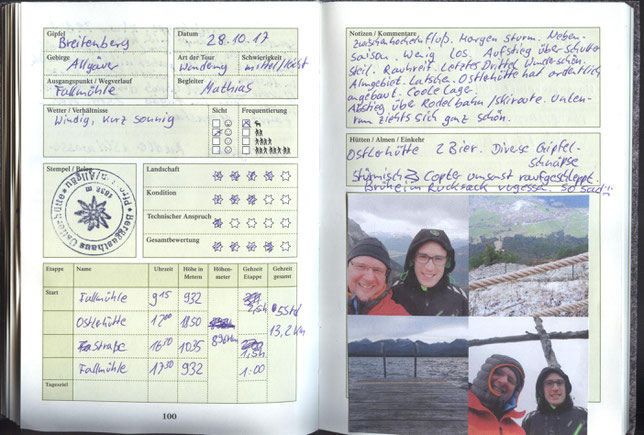 Gipfel
Breitenberg
Datum
28.10.17
Gebirge
Allgäuer
Art der Tour
Wanderung
Schwierigkeit
mittel/leicht
Ausgangspunkt / Wegverlauf
Fallmühle
Begleiter
Mathias
Wetter / Verhältnisse
Windig, kurz sonnig
Sicht
Frequentierung
Stempel / Belege
Berggasthaus Ostlerhütte
1838 m
Landschaft
Kondition
Technischer Anspruch
Gesamtbewertung
Etappe
Name
Uhrzeit
Höhe in Metern
Höhenmeter
Gehzeit Etappe
Gehzeit gesamt
Start
Fallmühle
9:15
932
2,5h
5 Std
Ostlerhütte
12:00
1850
13,2 km
Straße
1035
1,5h
Fallmühle
17:30
932
1:00
Tagesziel
100
Notizen / Kommentare
Zwischenhocheinfluß. Morgen Sturm. Neben-
saison. Wenig los. Aufstieg über Schutter
steil. Rauhreif. Letztes Drittel Wunderschön.
Almgebiet. Latsche. Ostlerhütte hat ordentlich
angebaut. Coole Lage.
Abstieg über Rodelbahn/Skiroute. Unten-
rum ziehts sich ganz schön.
Hütten / Almen / Einkehr
Ostlerhütte 2 Bier. Diverse Gipfel-
schnäpse
Stürmisch Copter umsonst raufgeschleppt.
Brühe im Rucksack vergessen. So sad!!